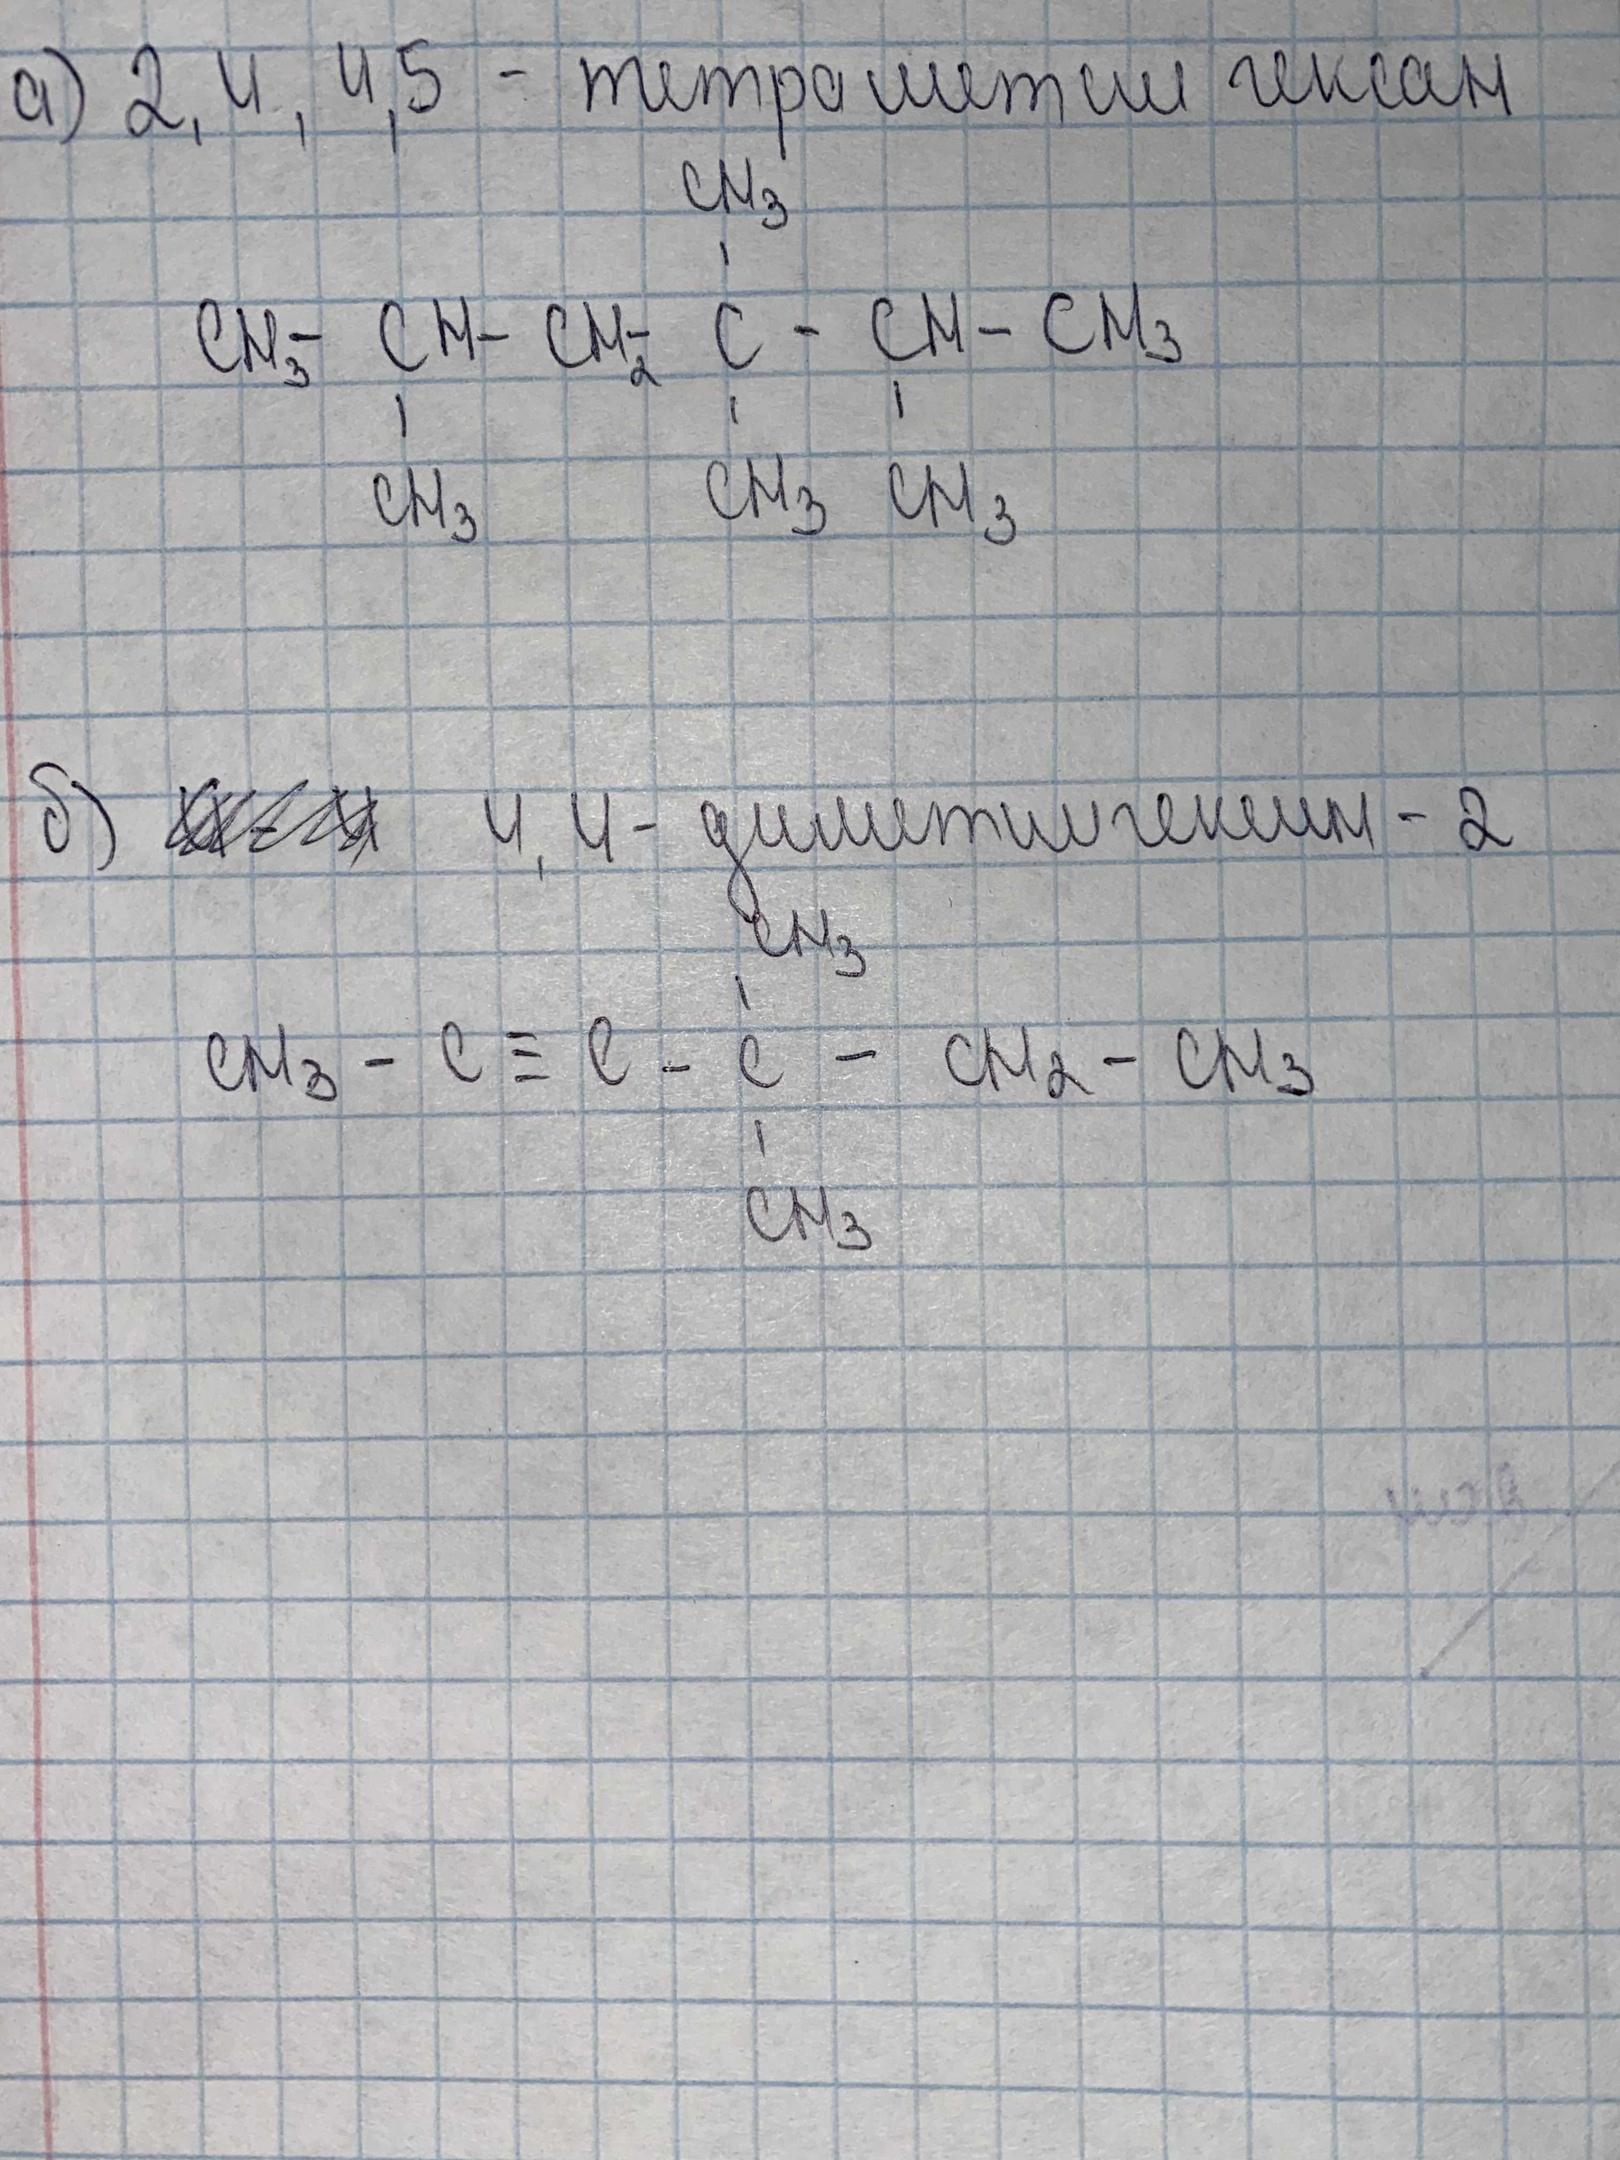 а) 2, 4, 4,5 - тетраметил гексан
CH3
CH3- CH- CH2- C - CH - CH3
CH3 CH3 CH3
б) 4,4- диметилгексин - 2
CH3
CH3 - C ≡ C - C - CH2 - CH3
CH3